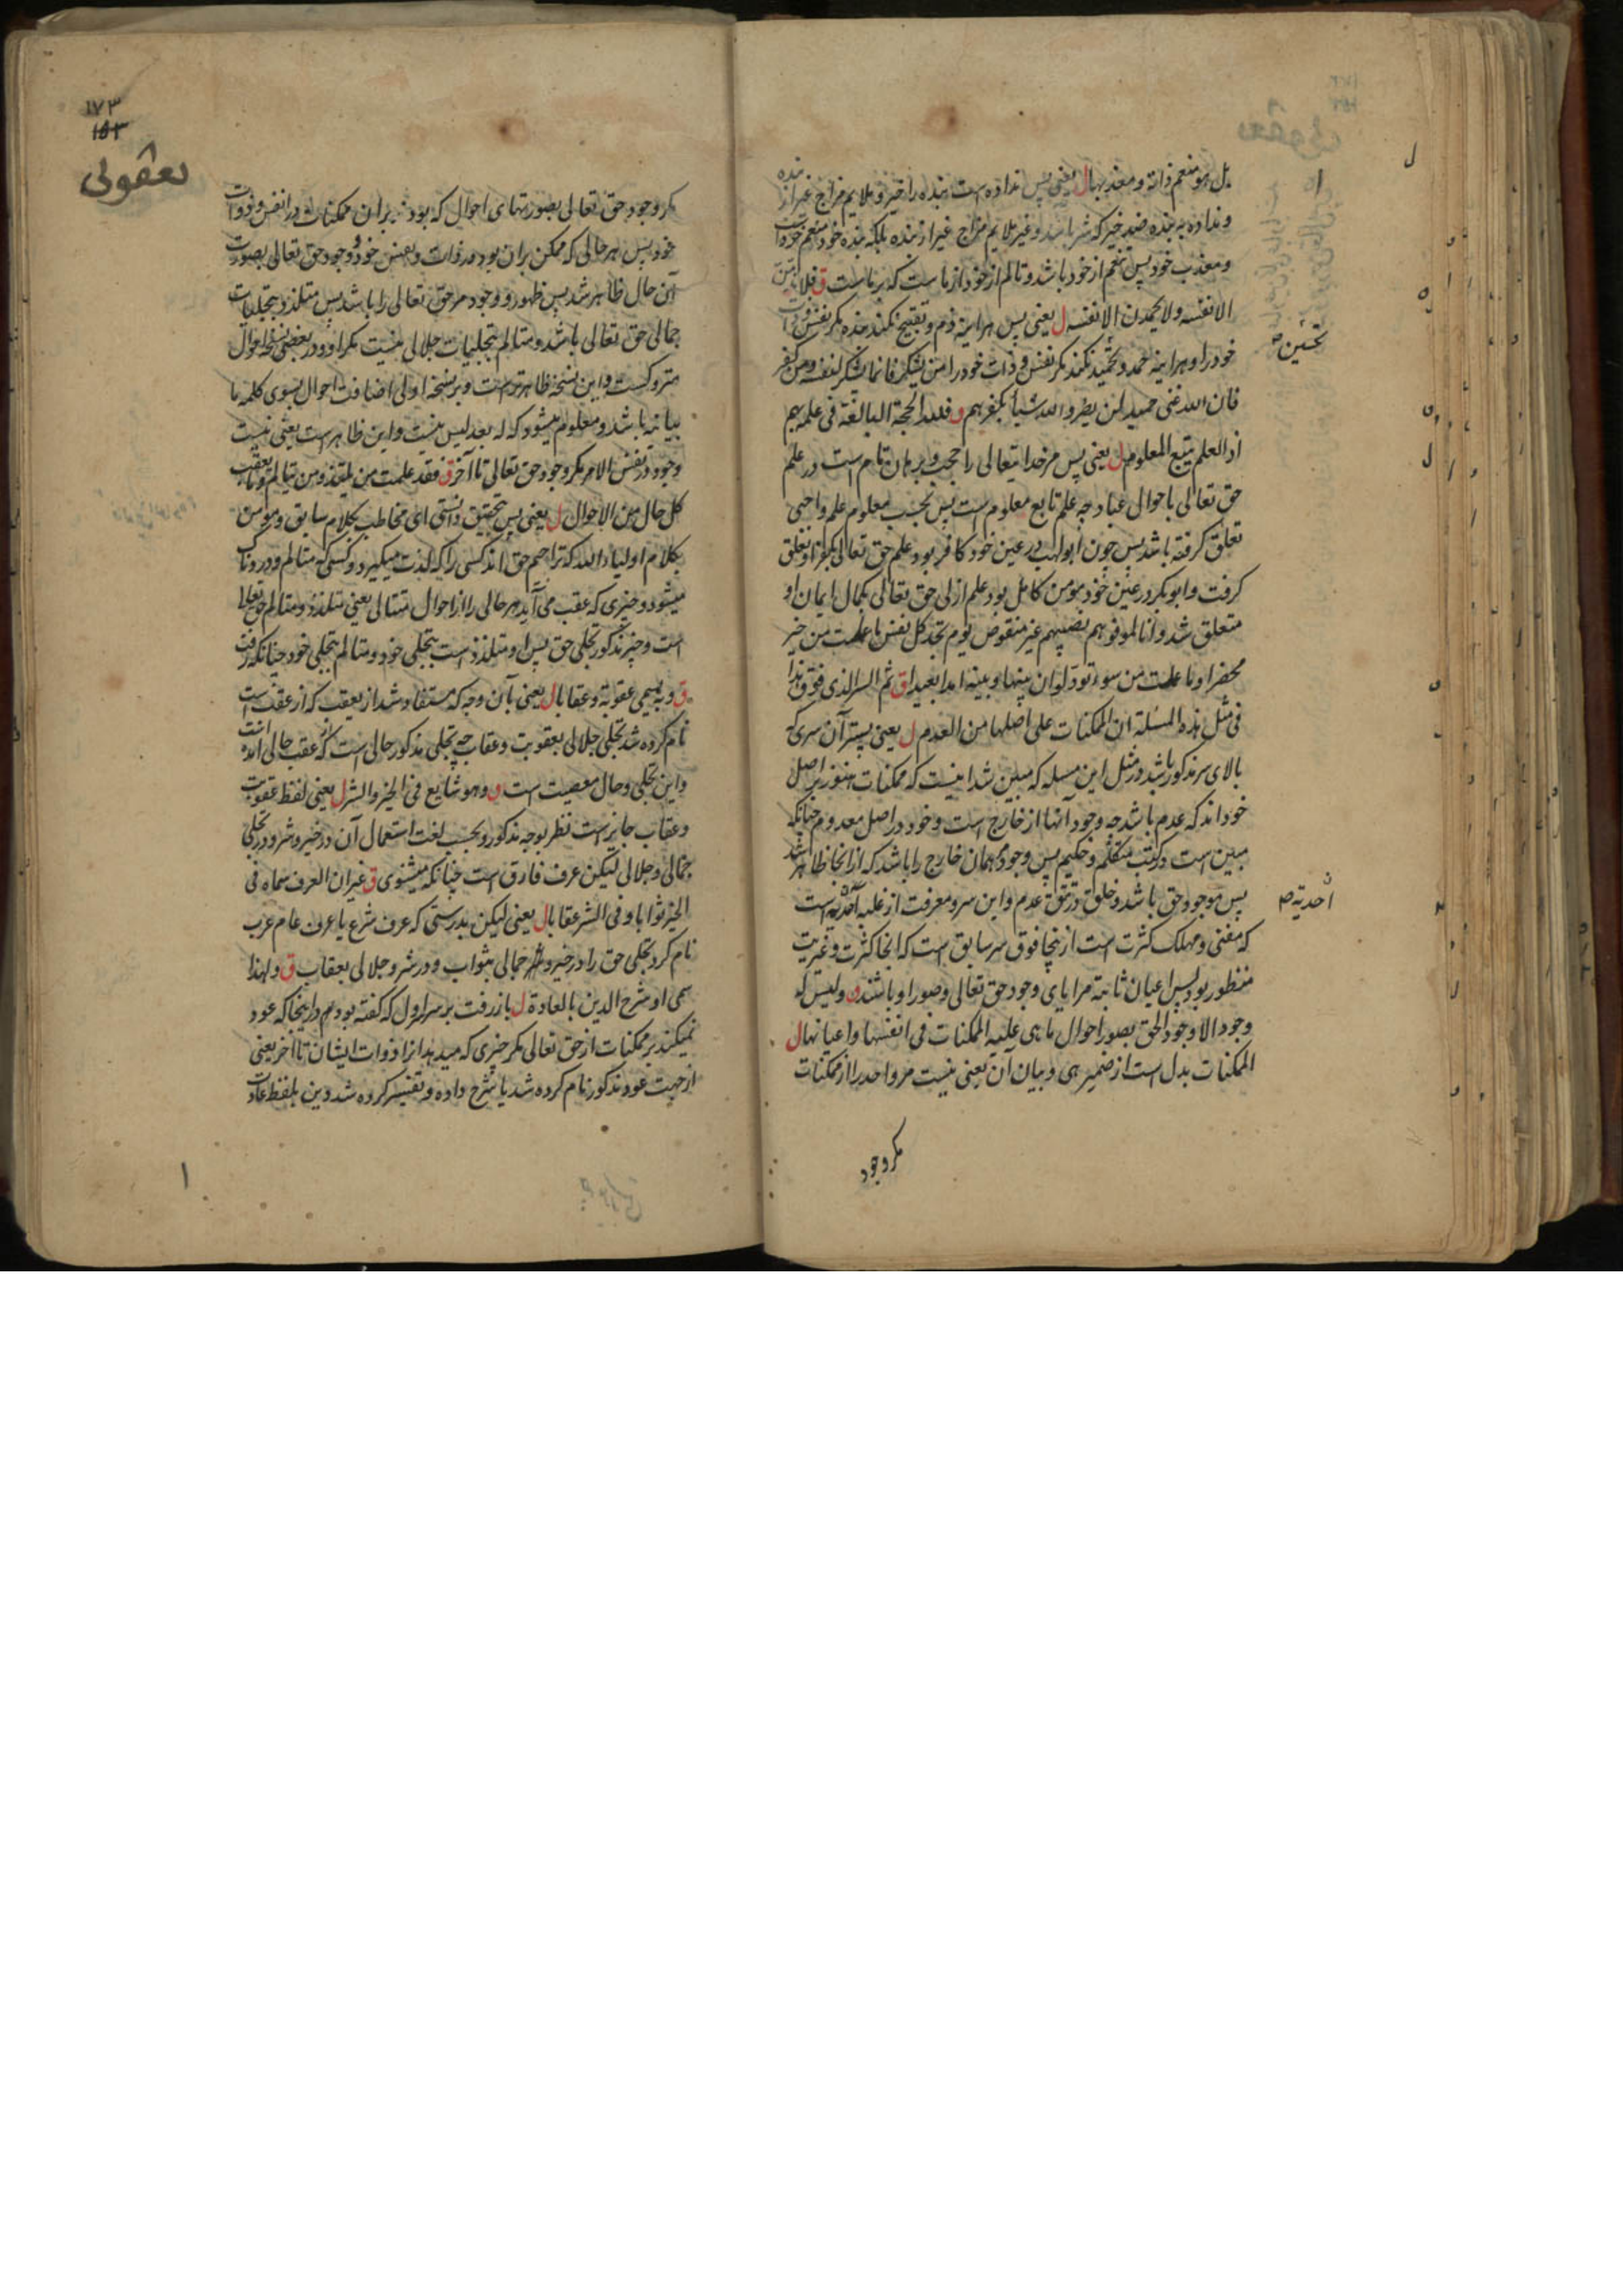 بل هو منعم ذاته و معذبها ل یعنی پس نداده است بنده را خیر و ملایم مزاج غیر از بنده
و نداده به بنده ضد خیر که شر باشد و غیر ملایم مزاج غیر از بنده بلکه بنده خود منعم خود است
و معذب خود پس تنعم از خود باشد و تالم از خود از ماست که بر ماست ق فلا یذمن
الا نفسه و لا یحمدن الا نفسه ل یعنی پس هر اینه ذم و تقبیح نکند بنده مکر نفس و ذات
خود را و هر اینه حمد و تحمید نکند مکر نفس و ذات خود را من یشکر فانما یشکر لنفسه و من کفر
تحسین ص
فان الله غنی حمید لن یضروا الله شیأ بکفرهم ق فلله الحجة البالغة فی علمه بهم
اذ العلم یتبع المعلوم ل یعنی پس مر خدایتعالی را حجت و برهان تام است در علم
حق تعالی باحوال عباد چه علم تابع معلوم است پس بحسب معلوم علم واجبی
تعلق کرفته باشد پس چون ابولهب در عین خود کافر بود علم حق تعالی بکفر او تعلق
کرفت و ابوبکر در عین خود مؤمن کامل بود علم ازلی حق تعالی بکمال ایمان او
متعلق شد و انا لموفوهم نصیبهم غیر منقوص یوم تجد کل نفس ما عملت من خیر
محضرا و ما عملت من سوء تود لو ان بینها و بینه امدا بعیدا ق ثم السر الذی فوق هذا
فی مثل هذه المسئلة ان الممکنات علی اصلها من العدم ل یعنی پستر آن سری که
بالای سر مذکور باشد در مثل این مسله که مبین شد اینست که ممکنات هنوز بر اصل
خود اند که عدم باشد چه وجود آنها از خارج است و خود در اصل معدوم چنانکه
مبین است در کتب متکلم و حکیم پس وجود همان خارج را باشد که از انجا ظاهر شد
پس موجود حق باشد و خلق در تق عدم و این سر و معرفت از غلبه احدیة است
احدیة ص
که مفنی و مهلک کثرت است از ینجا فوق سر سابق است که انجا کثرت و غیریت
منظور بود پس اعیان ثابته مرایای وجود حق تعالی و صور او باشند ق و لیس له
وجود الا وجود الحق بصور احوال ما هی علیه الممکنات فی انفسها و اعیانها ل
الممکنات بدل است از ضمیر هی و بیان آن یعنی نیست مر واحد را از ممکنات
مکر وجود
۱۷۳
۱۵۳
یعقوبی
مکر وجود حق تعالی بصورتهای احوال که بودند بران ممکنات در انفس و ذوات
خود پس هر حالی که ممکن بران بود در ذات و نفس خود وجود حق تعالی بصورت
آن حال ظاهر شد پس ظهور و وجود مر حق تعالی را باشد پس متلذذ بتجلیات
جمالی حق تعالی باشد و متالم بتجلیات جلالی نیست مکر او و در بعضی نسخه احوال
متروکست و این نسخه ظاهرتر است و بر نسخه اولی اضافت احوال بسوی کلمه ما
بیانیه باشد و معلوم میشود که له بعد لیس نیست و این ظاهر است یعنی نیست
وجود در نفس الامر مکر وجود حق تعالی تا آخر ق فقد علمت من یلتذ و من یتالم و ما یعقب
کل حال من الاحوال ل یعنی پس بتحقیق دانستی ای مخاطب بکلام سابق و مؤمن
بکلام اولیاء الله که تراجم حق اند کسی را که لذت میکیرد و کسی که متالم و دردناک
میشود و چیزی که عقب می آید هر حالی را از احوال متتالی یعنی متلذذ و متالم حق تعالی
است و چیز مذکور تجلی حق پس او متلذذ است بتجلی خود و متالم بتجلی خود چنانکه رفت
ق و به یسمی عقوبة و عقابا ل یعنی بآن وجه که مستفاد شد از یعقب که از عقب است
نام کرده شد تجلی جلالی بعقوبت و عقاب چه تجلی مذکور حالی است که عقب حالی آمده است
و این تجلی و حال معصیت است ق و هو شایع فی الخیر و الشر ل یعنی لفظ عقوبت
و عقاب جایز است نظر بوجه مذکور و بحسب لغت استعمال آن در خیر و شر و در تجلی
جمالی و جلالی لیکن عرف فارق است چنانکه میشنوی ق غیر ان العرف سماه فی
الخیر ثوابا و فی الشر عقابا ل یعنی لیکن بدرستی که عرف شرع یا عرف عام عرب
نام کرد تجلی حق را در خیر و جمالی بثواب و در شر و جلالی بعقاب ق و لهذا
سمی او شرح الدین بالعادة ل باز رفت بر سر اول که کفته بودم در اینجا که عود
نمیکند بر ممکنات از حق تعالی مکر چیزی که میدهد انرا ذوات ایشان تا آخر یعنی
از جهت عود مذکور نام کرده شد یا شرح داده و تفسیر کرده شد دین بلفظ عادت